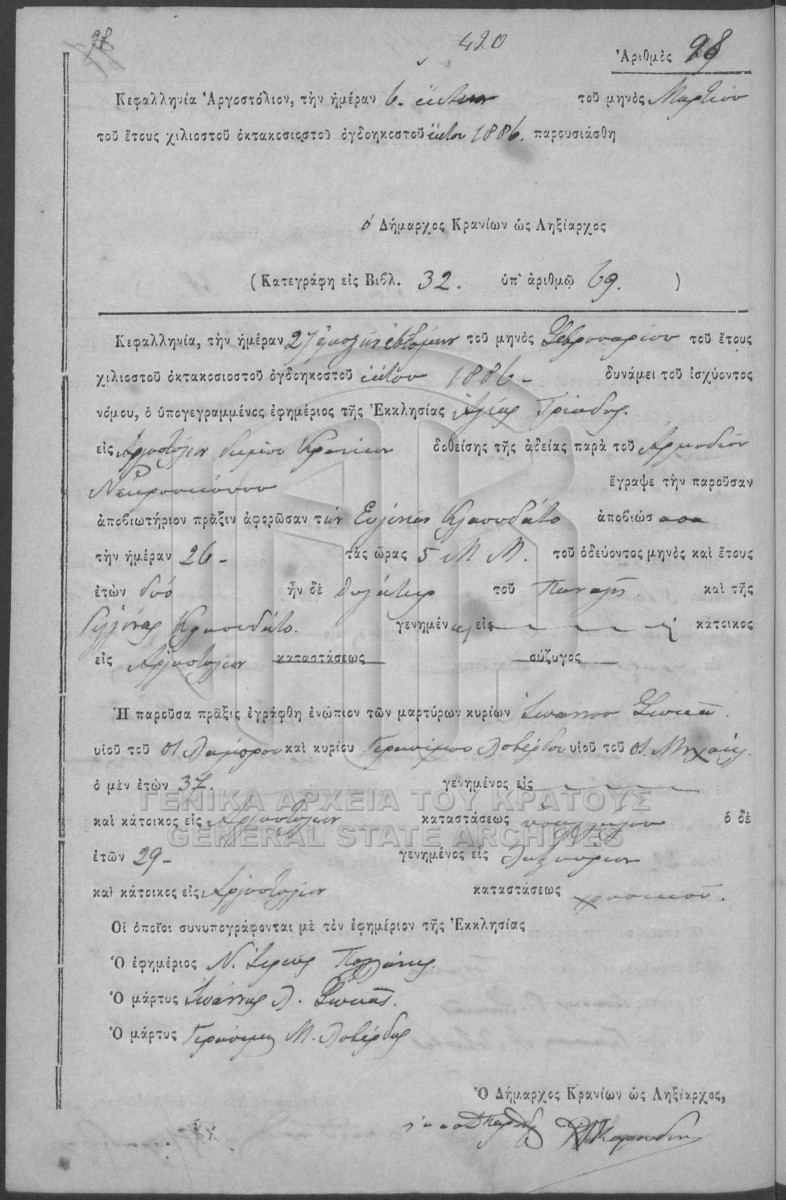 98 420 Ἀριθμὸς 98
Κεφαλληνία Ἀργοστόλιον, τὴν ἡμέραν 6. ἕκτην τοῦ μηνὸς Μαρτίου
τοῦ ἔτους χιλιοστοῦ ὀκτακοσιοστοῦ ὀγδοηκοστοῦ ἕκτου 1886. παρουσιάσθη
ὁ Δήμαρχος Κρανίων ὡς Ληξίαρχος
(Κατεγράφη εἰς Βιβλ. 32. ὑπ' ἀριθμῷ 69. )
Κεφαλληνία, τὴν ἡμέραν 27 εἰκοστὴν ἑβδόμην τοῦ μηνὸς Φεβρουαρίου τοῦ ἔτους
χιλιοστοῦ ὀκτακοσιοστοῦ ὀγδοηκοστοῦ ἕκτου 1886- δυνάμει τοῦ ἰσχύοντος
νόμου, ὁ ὑπογεγραμμένος ἐφημέριος τῆς Ἐκκλησίας Ἁγίας Τριάδος.
εἰς Ἀργοστόλιον δήμου Κρανίων δοθείσης τῆς ἀδείας παρὰ τοῦ Ἁρμοδίου
Νεκροσκόπου ἔγραψε τὴν παροῦσαν
ἀποβιωτήριον πρᾶξιν ἀφορῶσαν τὴν Εὐγενίαν Κλαουδάτο ἀποβιώσασαν
τὴν ἡμέραν 26- τὰς ὥρας 5 Μ Μ. τοῦ ὁδεύοντος μηνὸς καὶ ἔτους
ἐτῶν δύο ἦν δὲ θυγάτηρ τοῦ Παναγῆ. καὶ τῆς
Κλαουδάτο. γενημένη εἰς κάτοικος
εἰς Ἀργοστόλιον καταστάσεως σύζυγος
Ἡ παροῦσα πρᾶξις ἐγράφθη ἐνώπιον τῶν μαρτύρων κυρίων Ἰωάννου Φωκᾶ.
υἱοῦ τοῦ Λάμπρου καὶ κυρίου Γερασίμου Λοβέρδου υἱοῦ τοῦ Μιχαήλ.
ὁ μὲν ἐτῶν 37. γενημένος εἰς
καὶ κάτοικος εἰς Ἀργοστόλιον καταστάσεως ὑπαλλήλου ὁ δὲ
ἐτῶν 29- γενημένος εἰς Ληξούριον
καὶ κάτοικος εἰς Ἀργοστόλιον καταστάσεως χρυσικοῦ.
Οἱ ὁποῖοι συνυπογράφονται μὲ τὸν ἐφημέριον τῆς Ἐκκλησίας
Ὁ ἐφημέριος Ν. Ἱερεὺς
Ὁ μάρτυς Ἰωάννης Λ. Φωκᾶς.
Ὁ μάρτυς Γεράσιμος Μ. Λοβέρδος
Ὁ Δήμαρχος Κρανίων ὡς Ληξίαρχος,
ΓΕΝΙΚΑ ΑΡΧΕΙΑ ΤΟΥ ΚΡΑΤΟΥΣ
GENERAL STATE ARCHIVES